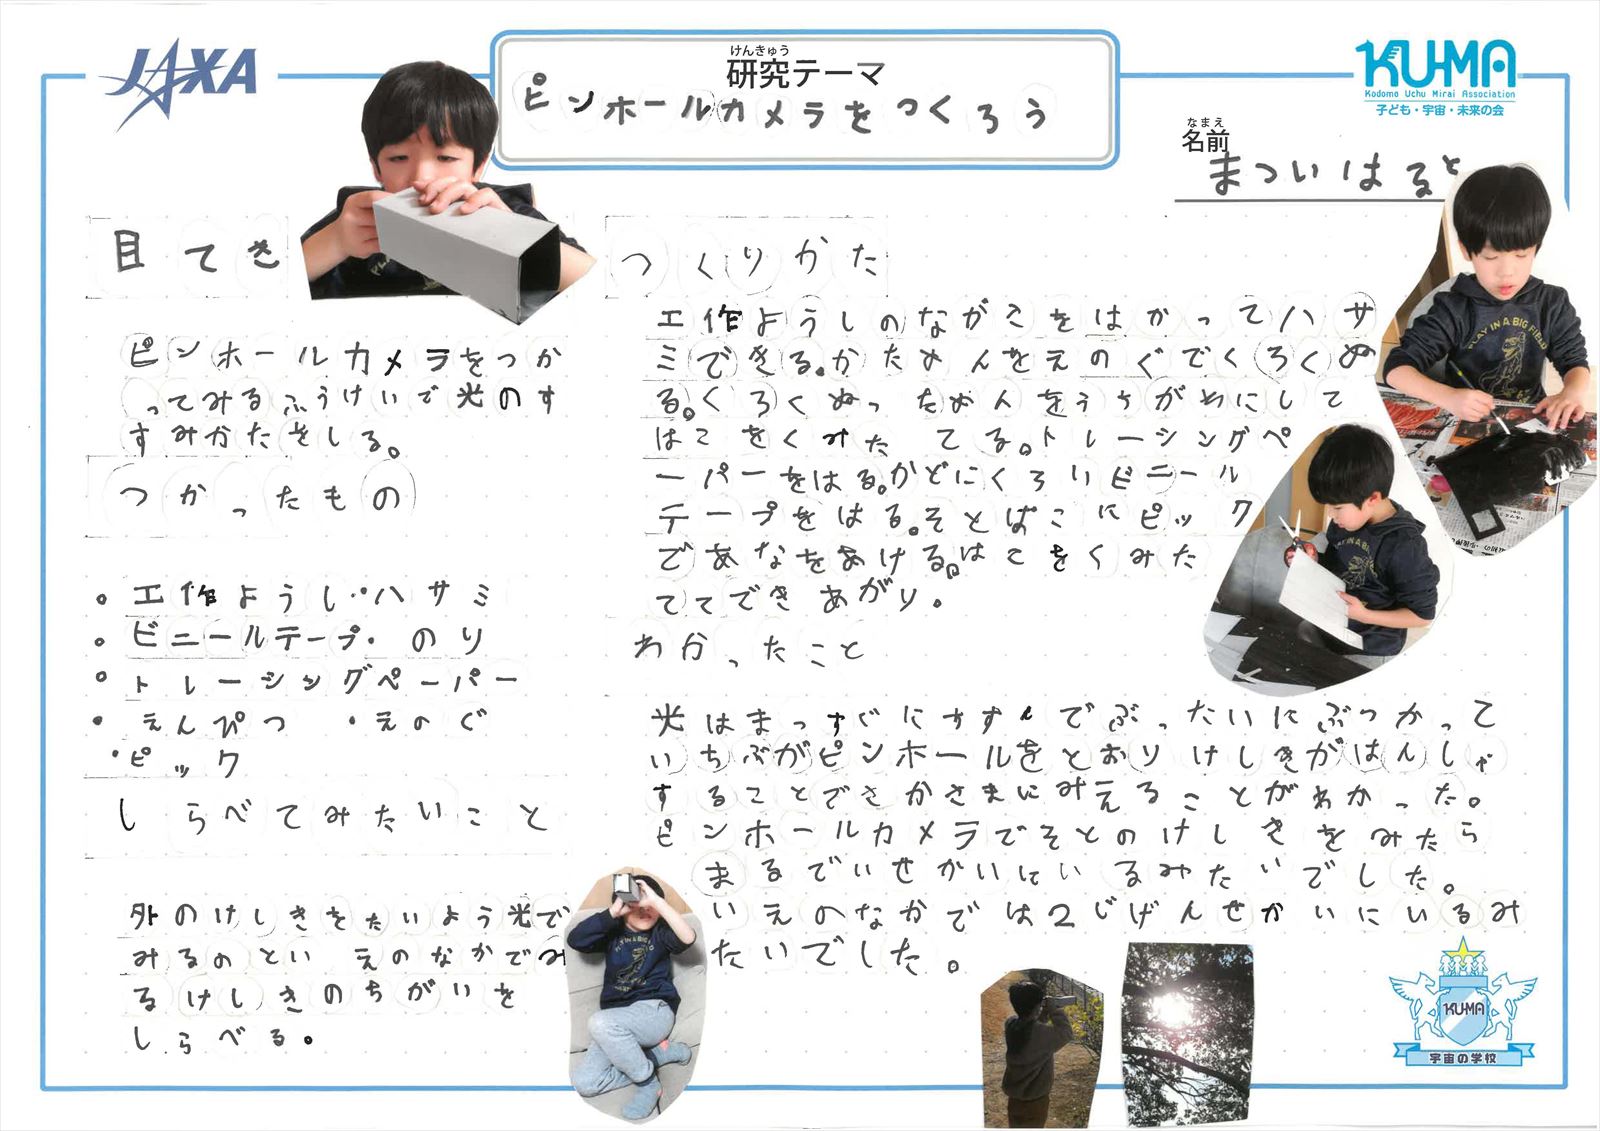 JAXA
けんきゅう
研究テーマ
ピンホールカメラをつくろう
KUMA
Kodomo Uchu Mirai Association
子ども・宇宙・未来の会
なまえ
名前
まついはると
目てき
ピンホールカメラをつか
ってみるふうけいで光のす
すみかたをしる。
つかったもの
。工作ようし・ハサミ
。ビニールテープ・のり
。トレーシングペーパー
・えんぴつ ・えのぐ
・ピック
しらべてみたいこと
外のけしきをたいよう光で
みるのといえのなかでみ
るけしきのちがいを
しらべる。
つくりかた
工作ようしのながさをはかってハサ
ミできる。かためんをえのぐでくろくぬ
る。くろくぬっためんをうちがわにして
はこをくみたてる。トレーシングペ
ーパーをはる。かどにくろいビニール
テープをはる。そとばこにピック
であなをあける。はこをくみた
ててできあがり。
わかったこと
光はまっすぐにすすんでぶったいにぶつかって
いちぶがピンホールをとおりけしきがはんしゃ
することでさかさまにみえることがわかった。
ピンホールカメラでそとのけしきをみたら
まるでいせかいにいるみたいでした。
いえのなかでは2じげんせかいにいるみ
たいでした。
PLAY IN A BIG FIELD
KUMA
宇宙の学校